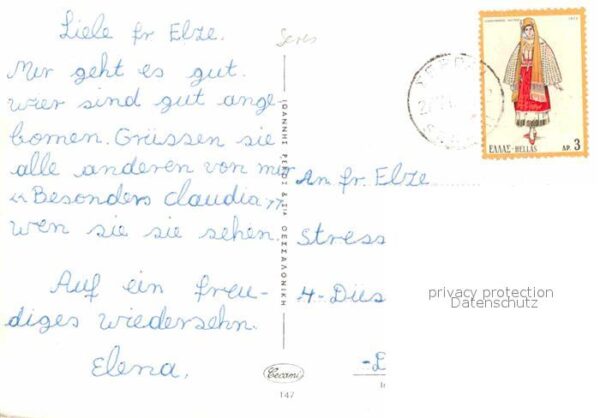 Liebe fr Elze.
Seres
Mir geht es gut.
wier sind gut ange-
komen. Grüssen sie
alle anderen von mir
"Besonders claudia"
wen sie sie sehen.
Auf ein freu-
diges wiedersehn.
Elena,
ΙΩΑΝΝΗΣ ΡΕΚΟΣ & ΣΙΑ ΘΕΣΣΑΛΟΝΙΚΗ
Cecami
147
ΕΛΛΑΣ-HELLAS ΔΡ. 3
An fr. Elze
Stress
4-Düs
privacy protection
Datenschutz